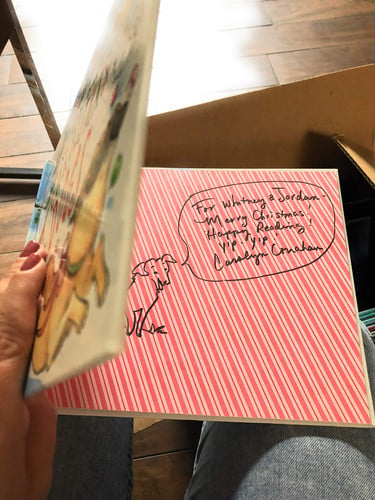 For Whitney & Jordan-
Merry Christmas
Happy Reading!
Yip, Yip
Carolyn Conahan